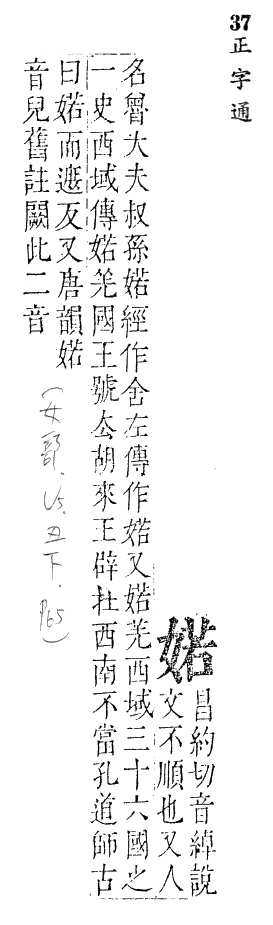 37 正字通
婼
昌約切音綽說
文不順也又人
名魯大夫叔孫婼經作舍左傳作婼又婼羌西域三十六國之
一史西域傳婼羌國王號厺胡來王辟在西南不當孔道師古
曰婼而遮反又唐韻婼
音兒舊註闕此二音
(女部. 丑下. P65)